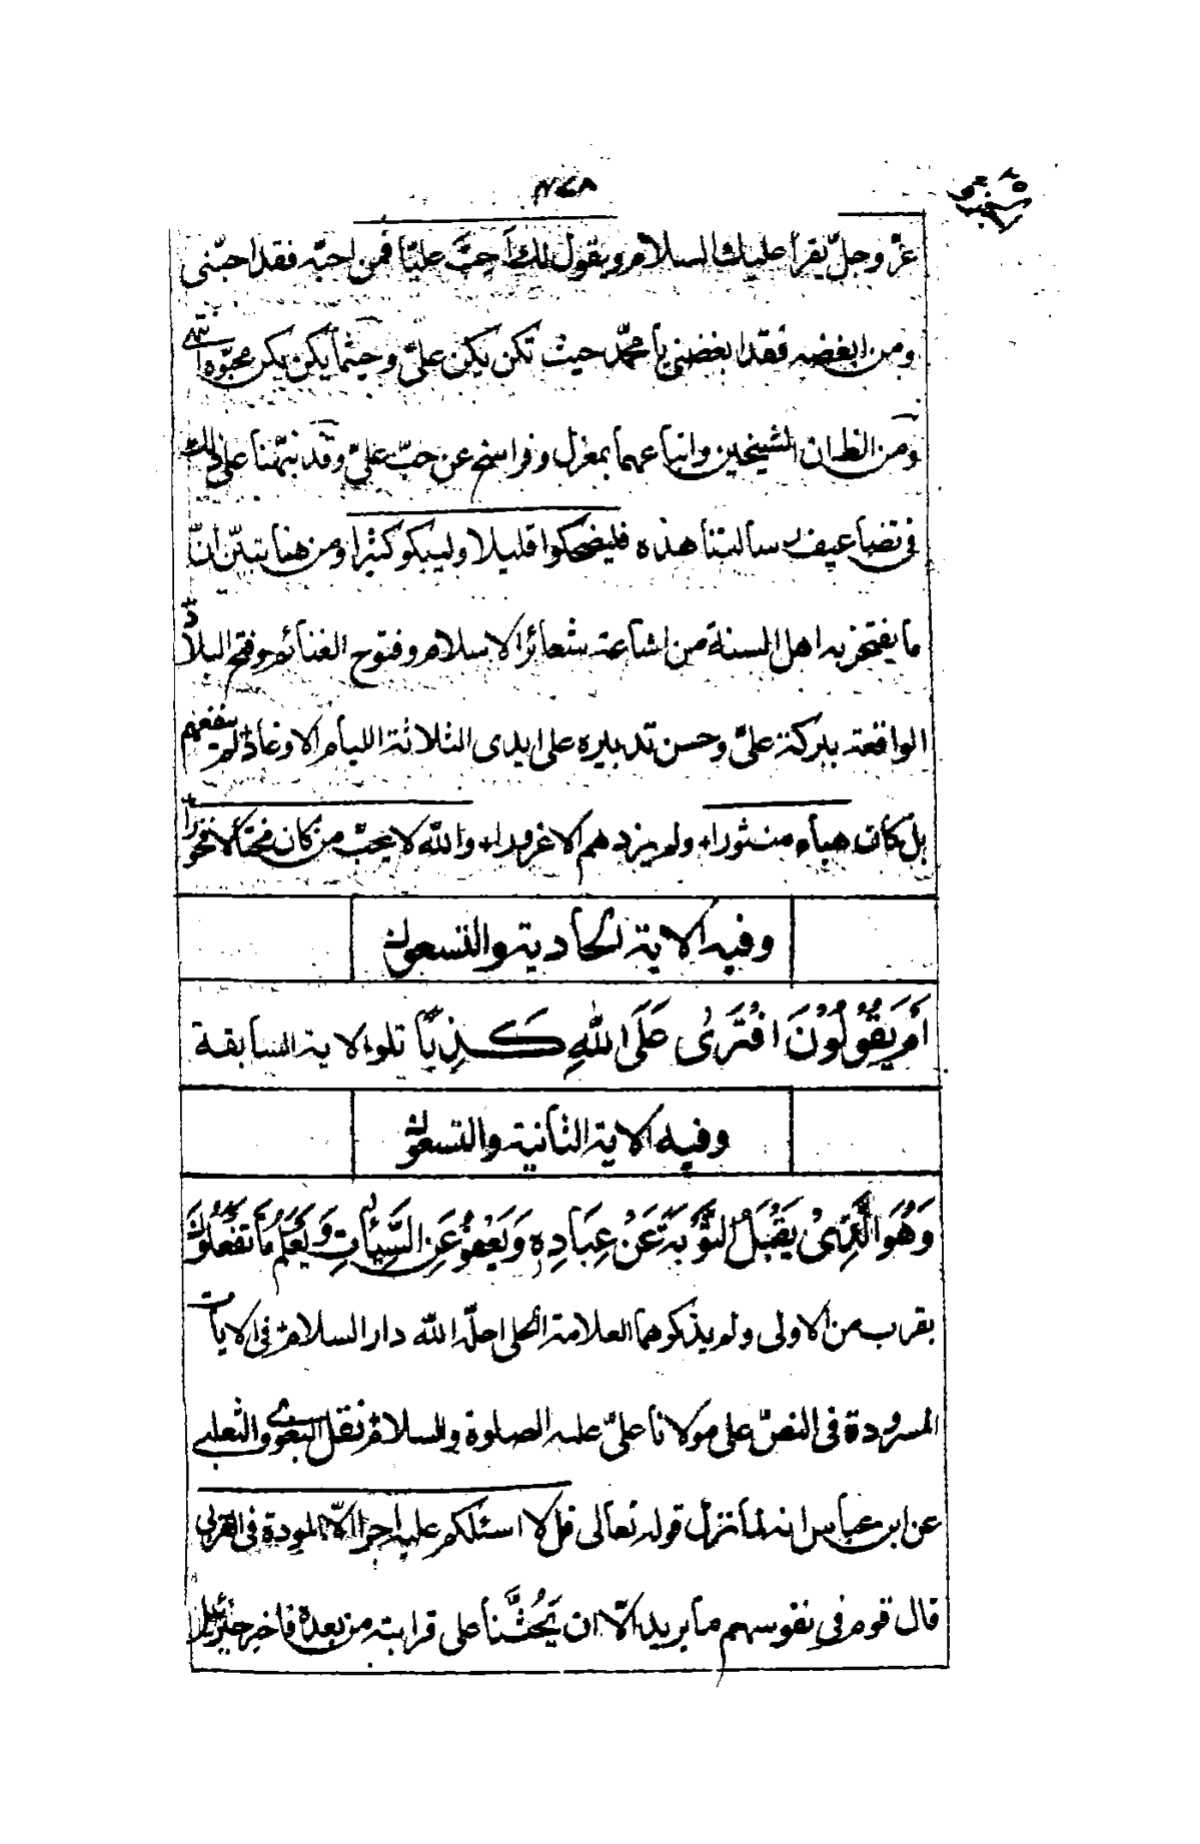 ٤٧٨
عزّ وجلّ يقرأ عليك السلام ويقول لك أحبّ عليّا فمن احبّه فقد احبّنى
ومن ابغضه فقد ابغضنى يا محمّد حيث تكن يكن علىّ وحيثما يكن يكن محبّوه انتهى
ومن الظان الشيخين واتباعهما بمعزل وفراسخ عن حبّ علىّ وقد نبّهنا على ذلك
فى تضاعيف رسالتنا هذه فليضحكوا قليلا وليبكوا كثيرا ومن هنا تبيّن انّ
ما يفتخر به اهل السنة من اشاعة شعائر الاسلام وفتوح الغنائم وفتح البلاد
الواقعة ببركة علىّ وحسن تدبيره على ايدى الثلاثة الليام الاوغاد لم ينفعهم
بل كان هباء منثورا ولم يزدهم الا غرورا والله لا يحبّ من كان مختالا فخورا
وفيه الاية الحادية والتسعون
أَمْ يَقُولُونَ افْتَرَىٰ عَلَى اللّٰهِ كَذِبًا تلو الاية السابقة
وفيه الاية الثانية والتسعون
وَهُوَ الَّذِىْ يَقْبَلُ التَّوْبَةَ عَنْ عِبَادِهِ وَيَعْفُو عَنِ السَّيِّئَاتِ وَيَعْلَمُ مَا تَفْعَلُونَ
بقرب من الاولى ولم يذكرهما العلامة الحلى احلّه الله دار السلام فى الايات
المسرودة فى النصّ على مولانا علىّ عليه الصلوة والسلام نقل البغوى والثعلبى
عن ابن عباس انه لما نزل قوله تعالى قل لا اسئلكم عليه اجرا الّا المودة فى القربى
قال قوم فى نفوسهم ما يريد الّا ان يَحُثَّنا على قرابته من بعده فاخبر جبرئيل